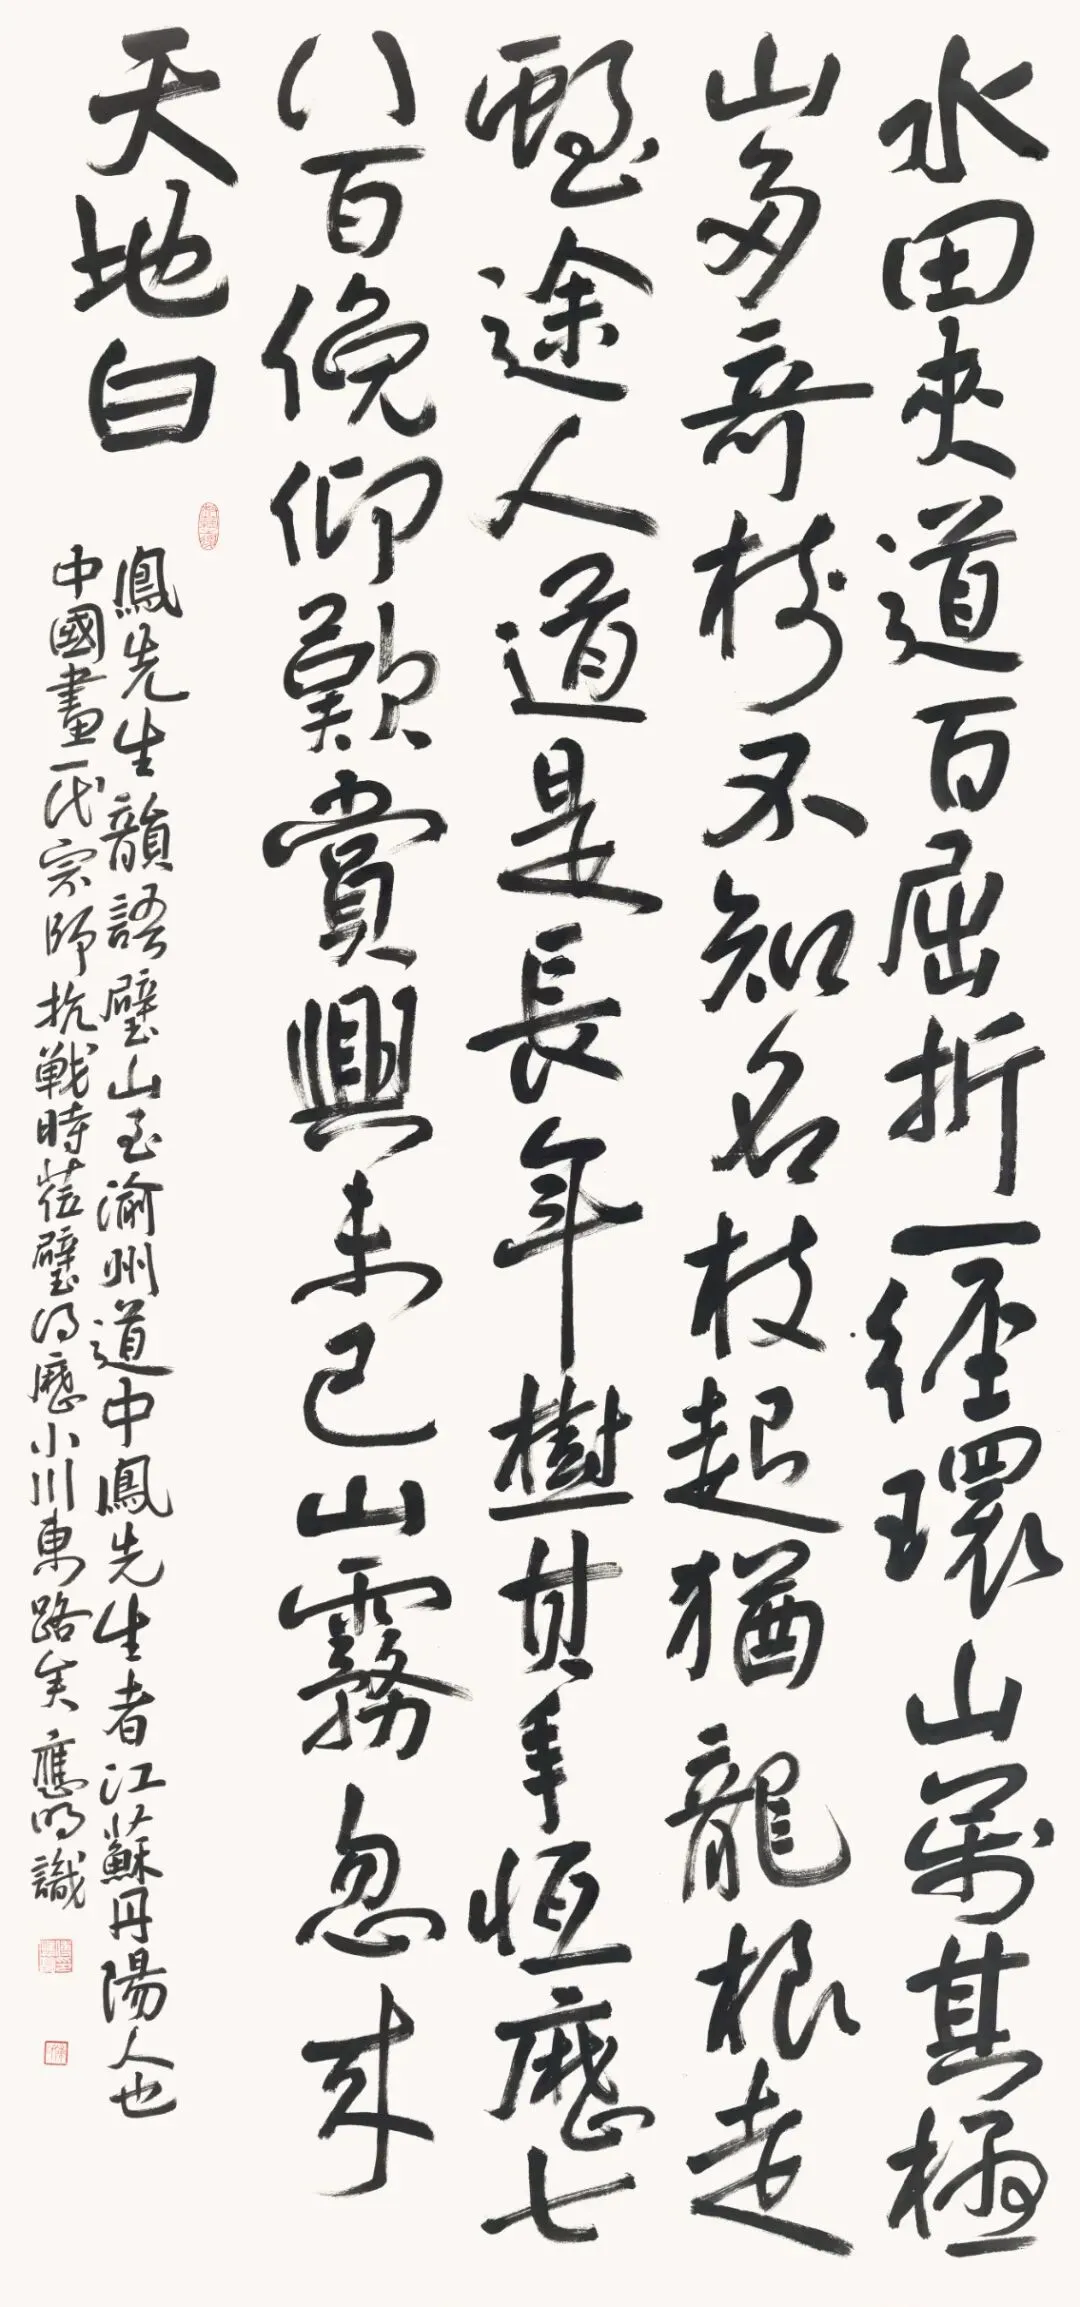 水田夾道百屈折一徑環山萬其極
山多奇樹不知名枝起猶龍根走
途人道是長年樹其年恒歷七
八百俛仰歎賞興未已山霧忽來
天地白
鳳先生韻語璧山至渝州道中鳳先生者江蘇丹陽人也
中國畫一代宗師抗戰時蒞璧得歷小川東路矣應明識